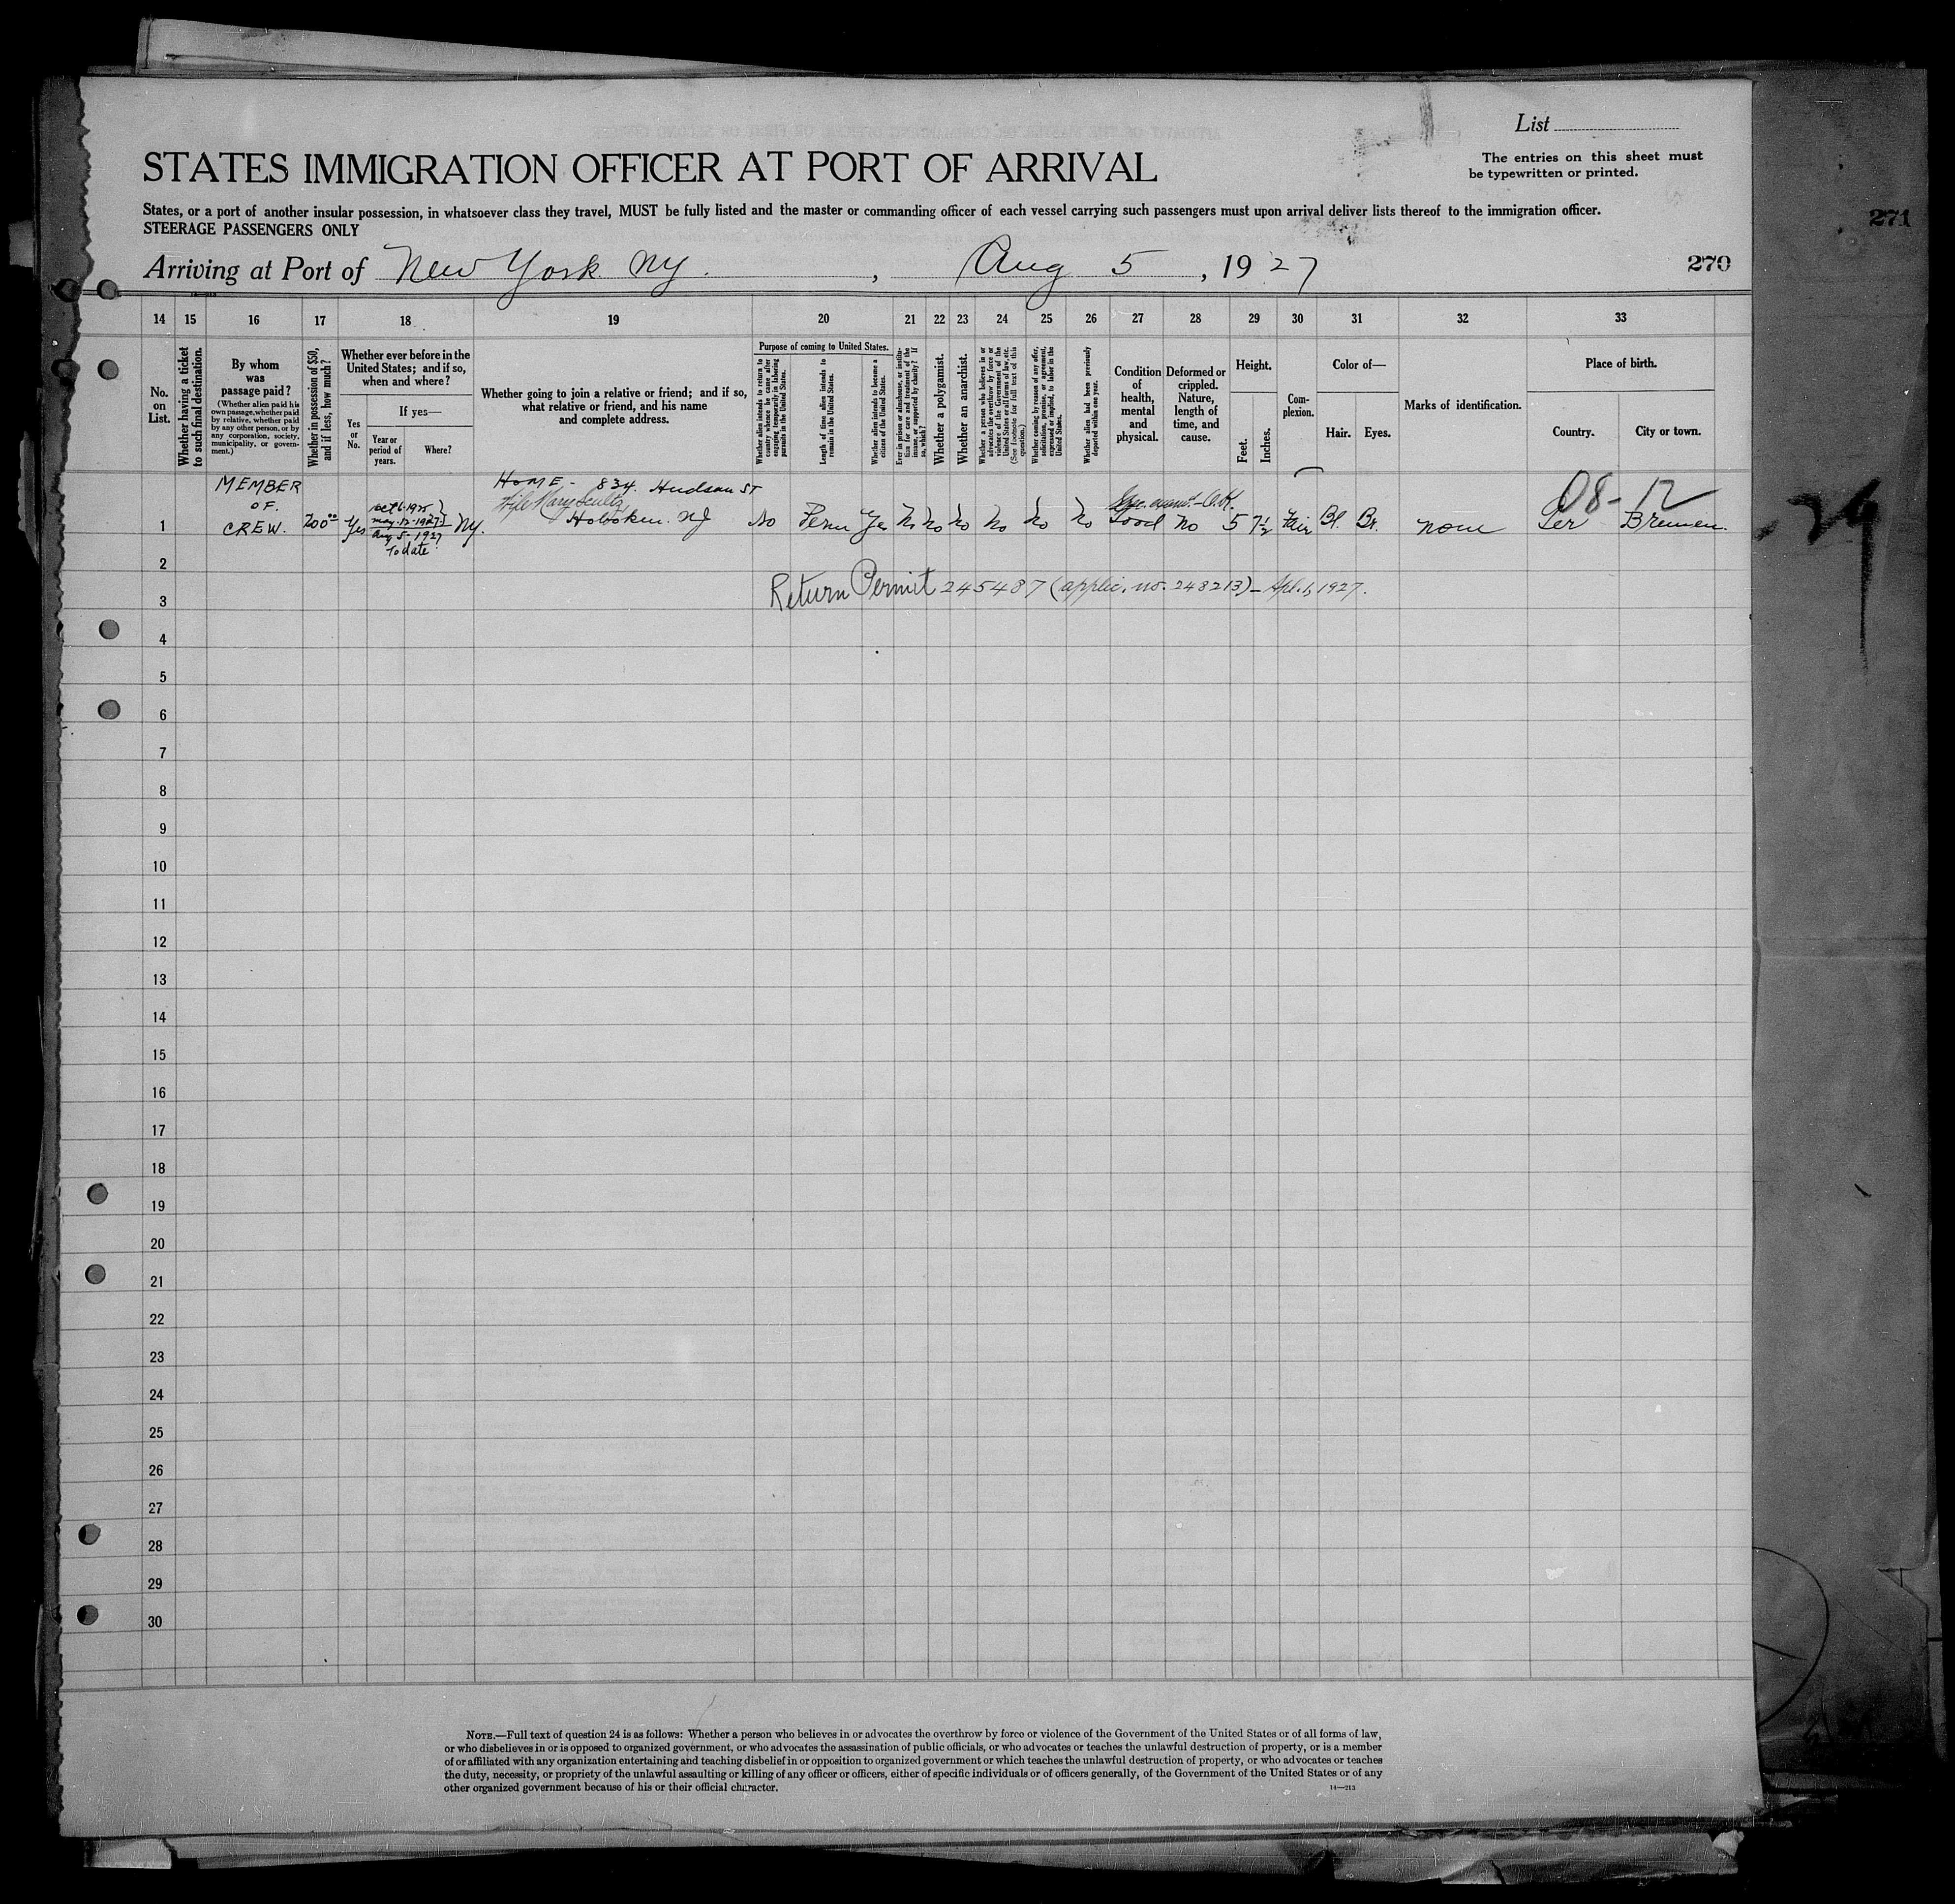 List
The entries on this sheet must
be typewritten or printed.
STATES IMMIGRATION OFFICER AT PORT OF ARRIVAL
States, or a port of another insular possession, in whatsoever class they travel, MUST be fully listed and the master or commanding officer of each vessel carrying such passengers must upon arrival deliver lists thereof to the immigration officer.
STEERAGE PASSENGERS ONLY
271
Arriving at Port of New York NY. , Aug 5 , 1927
270
14 15 16 17 18 19 20 21 22 23 24 25 26 27 28 29 30 31 32 33
No.
on
List.
Whether having a ticket
to such final destination.
By whom
was
passage paid?
(Whether alien paid his
own passage, whether paid
by relative, whether paid
by any other person, or by
any corporation, society,
municipality, or govern-
ment.)
Whether in possession of $50,
and if less, how much?
Whether ever before in the
United States; and if so,
when and where?
Yes
or
No.
If yes—
Year or
period of
years.
Where?
Whether going to join a relative or friend; and if so,
what relative or friend, and his name
and complete address.
Purpose of coming to United States.
Whether alien intends to return to
country whence he came after
engaging temporarily in laboring
pursuits in the United States.
Length of time alien intends to
remain in the United States.
Whether alien intends to become a
citizen of the United States.
Ever in prison or almshouse, or institu-
tion for care and treatment of the
insane, or supported by charity? If
so, which?
Whether a polygamist.
Whether an anarchist.
Whether a person who believes in or
advocates the overthrow by force or
violence of the Government of the
United States or all forms of law, etc.
(See footnote for full text of this
question.)
Whether coming by reason of any offer,
solicitation, promise, or agreement,
expressed or implied, to labor in the
United States.
Whether alien had been previously
deported within one year.
Condition
of
health,
mental
and
physical.
Deformed or
crippled.
Nature,
length of
time, and
cause.
Height.
Feet.
Inches.
Com-
plexion.
Color of—
Hair.
Eyes.
Marks of identification.
Place of birth.
Country.
City or town.
MEMBER
OF.
CREW.
1
700⁰⁰
Yes
Oct 6-1925
May-12-1927
Aug 5-1927
To date
NY.
HOME - 834. Hudson ST
Wife Mary
Hoboken. NJ
No Perm Yes No No No No No No
O.K.
Good No 5 7½ Fair Bl. Br. none
08-12
Ger Bremen.
2
Return Permit 245487 (applic. no. 248213) - Apl. 1, 1927.
3
4
5
6
7
8
9
10
11
12
13
14
15
16
17
18
19
20
21
22
23
24
25
26
27
28
29
30
NOTE.—Full text of question 24 is as follows: Whether a person who believes in or advocates the overthrow by force or violence of the Government of the United States or of all forms of law,
or who disbelieves in or is opposed to organized government, or who advocates the assassination of public officials, or who advocates or teaches the unlawful destruction of property, or is a member
of or affiliated with any organization entertaining and teaching disbelief in or opposition to organized government or which teaches the unlawful destruction of property, or who advocates or teaches
the duty, necessity, or propriety of the unlawful assaulting or killing of any officer or officers, either of specific individuals or of officers generally, of the Government of the United States or of any
other organized government because of his or their official character.
14—213